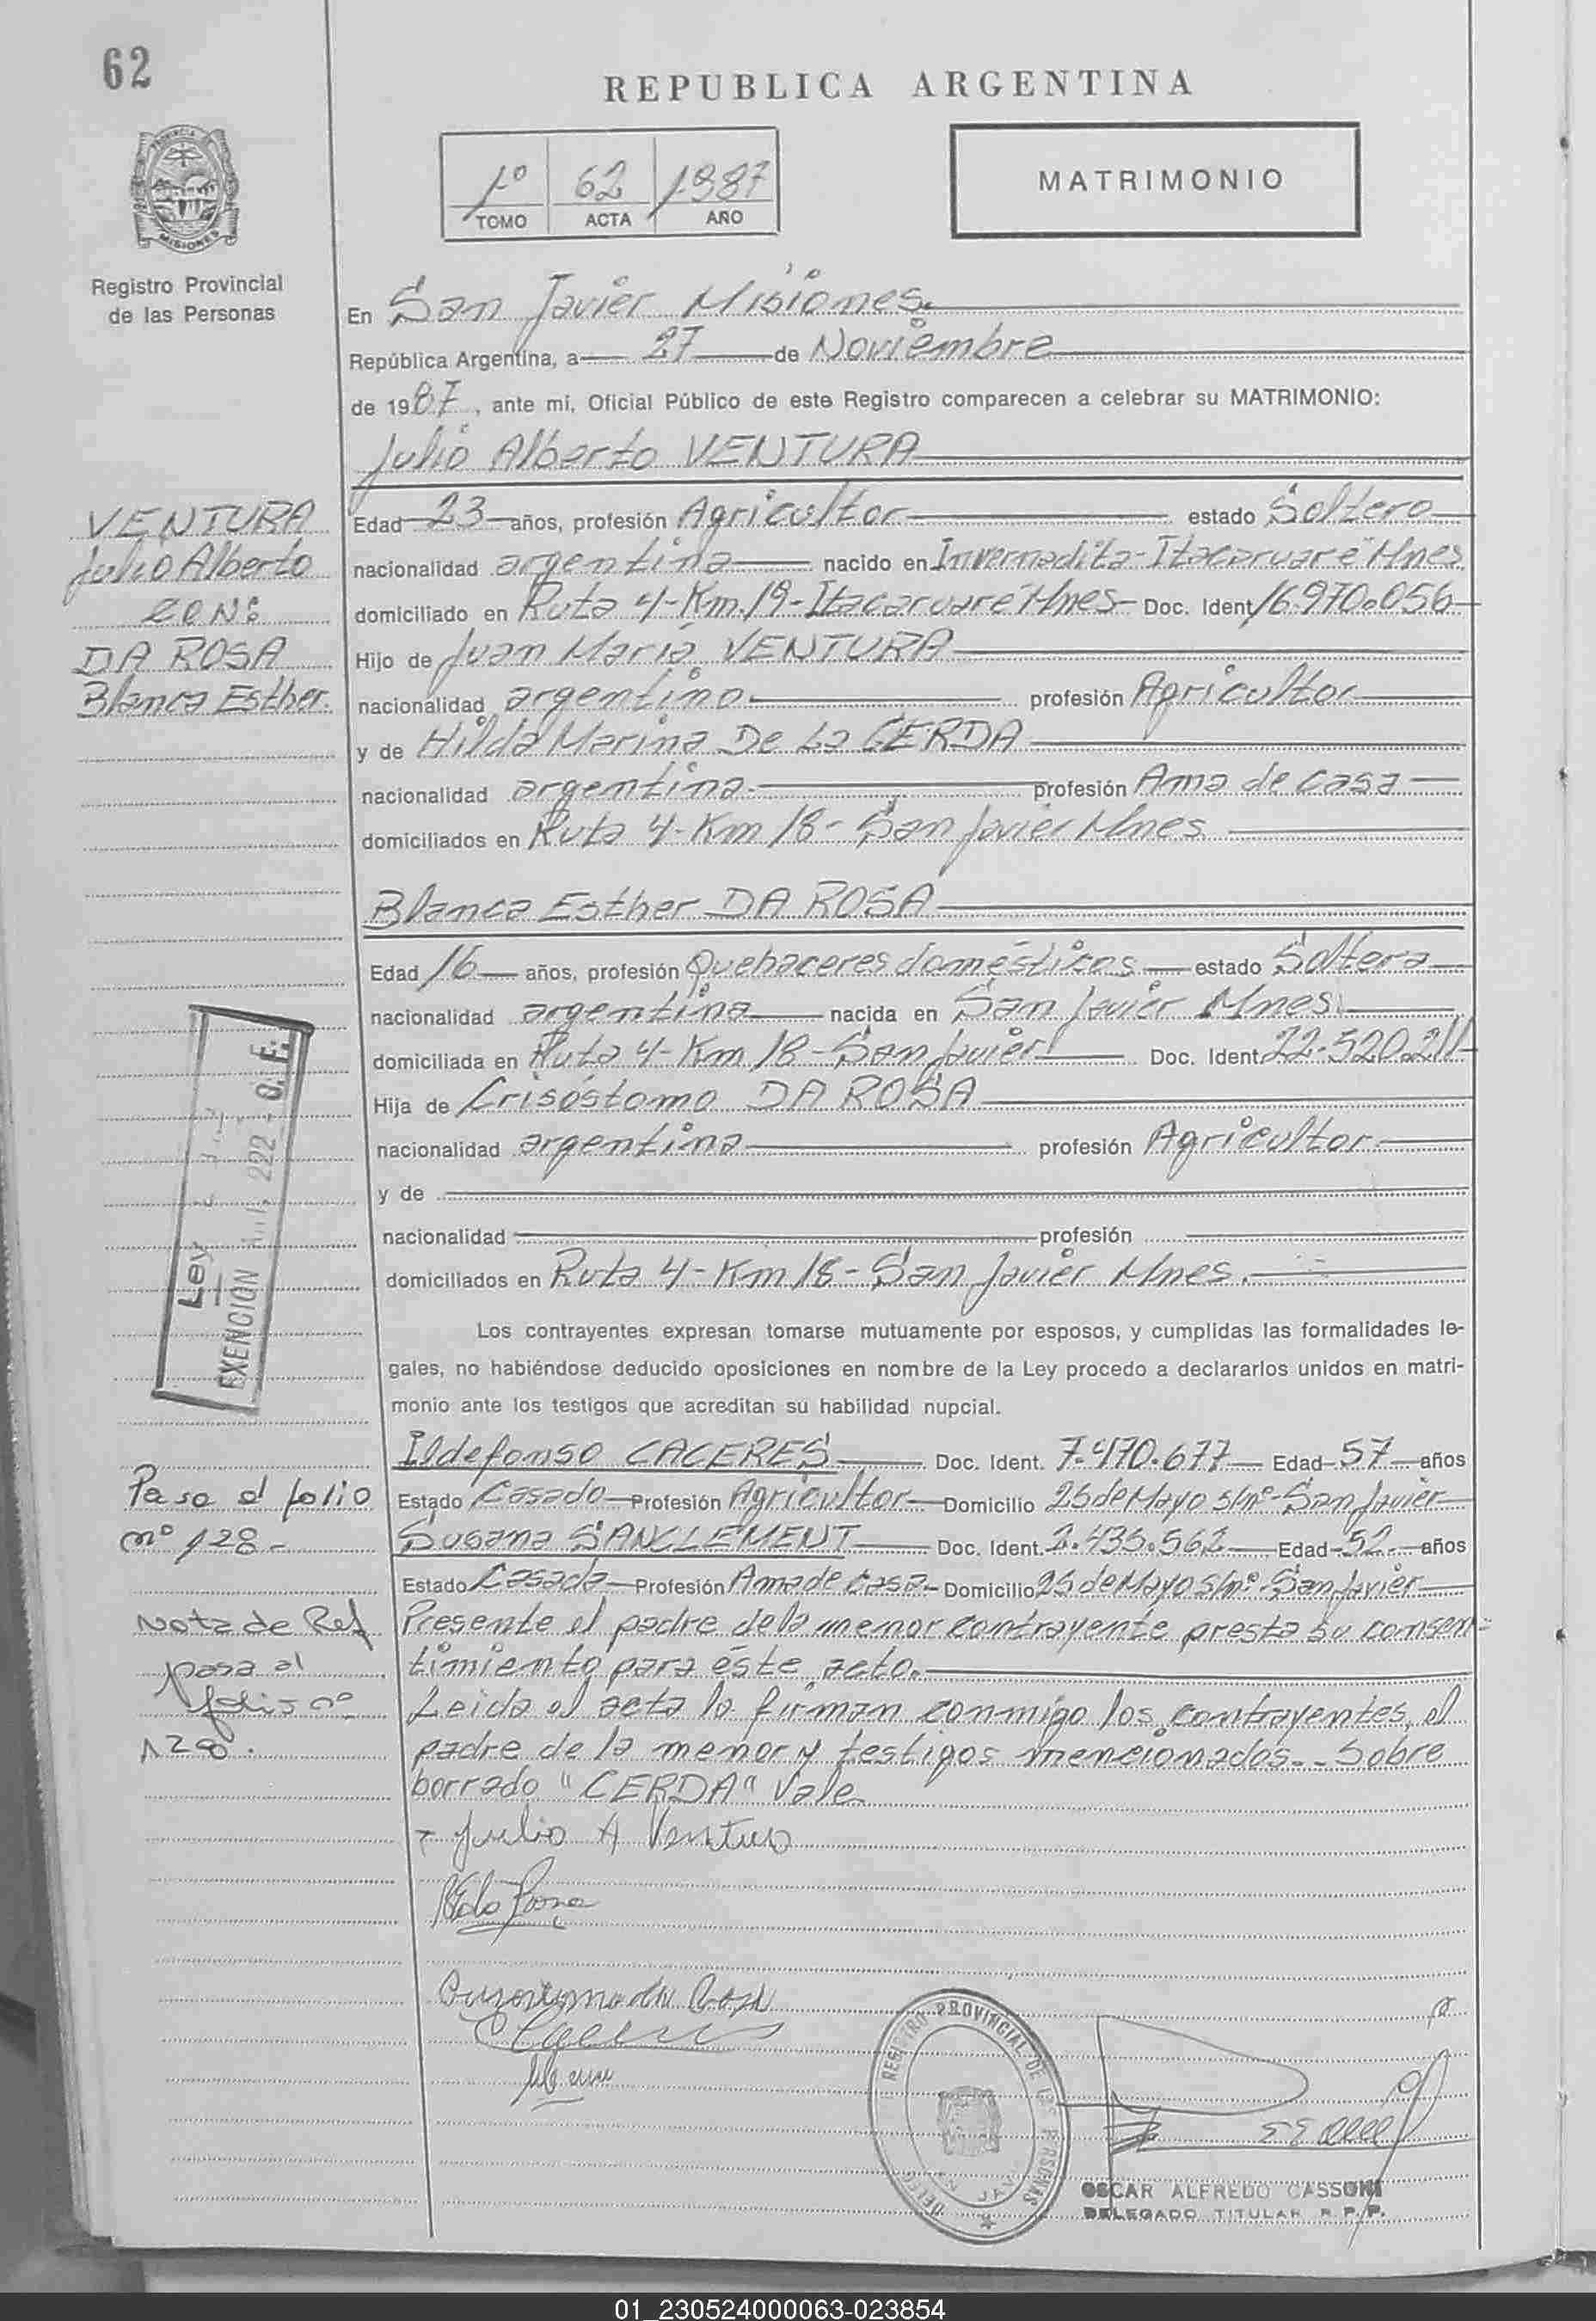 62
REPUBLICA ARGENTINA
1º 62 1987
TOMO ACTA AÑO
MATRIMONIO
PROVINCIA
MISIONES
Registro Provincial
de las Personas
En San Javier Misiones.
República Argentina, a 27 de Noviembre
de 1987, ante mí, Oficial Público de este Registro comparecen a celebrar su MATRIMONIO:
Julio Alberto VENTURA
VENTURA
Julio Alberto
CON:
DA ROSA
Blanca Esther.
Edad 23 años, profesión Agricultor estado Soltero
nacionalidad argentina nacido en Invernadita-Itacaruaré Mnes
domiciliado en Ruta 4-Km.19-Itacaruaré Mnes Doc. Ident 16.970.056
Hijo de Juan María VENTURA
nacionalidad argentino profesión Agricultor
y de Hilda Marina De La CERDA
nacionalidad argentina profesión Ama de casa
domiciliados en Ruta 4-Km 18-San Javier Mnes
Blanca Esther DA ROSA
Edad 16 años, profesión Quehaceres domésticos estado Soltera
nacionalidad argentina nacida en San Javier Mnes.
domiciliada en Ruta 4-Km 18-San Javier Doc. Ident. 22.520.211
Hija de Crisóstomo DA ROSA
nacionalidad argentina profesión Agricultor
y de
nacionalidad profesión
domiciliados en Ruta 4-Km 18-San Javier Mnes.
Ley
EXENCION 222 - O.F.
Los contrayentes expresan tomarse mutuamente por esposos, y cumplidas las formalidades le-
gales, no habiéndose deducido oposiciones en nombre de la Ley procedo a declararlos unidos en matri-
monio ante los testigos que acreditan su habilidad nupcial.
Ildefonso CACERES Doc. Ident. 7.470.677 Edad 57 años
Estado Casado Profesión Agricultor Domicilio 25 de Mayo s/nº-San Javier
Susana SANCLEMENT Doc. Ident. 2.435.562 Edad 52 años
Estado Casada Profesión Ama de casa Domicilio 25 de Mayo s/nº-San Javier
Pasa al folio
nº 128-
Nota de Ref
pasa al
folio nº
128.
Presente el padre de la menor contrayente presta su consen=
timiento para éste acto.
Leida el acta la firman conmigo los contrayentes, el
padre de la menor y testigos mencionados.- Sobre
borrado "CERDA" Vale
Julio A Ventura
REGISTRO PROVINCIAL DE LAS PERSONAS
OSCAR ALFREDO CASSONI
DELEGADO TITULAR R.P.P.
01_230524000063-023854